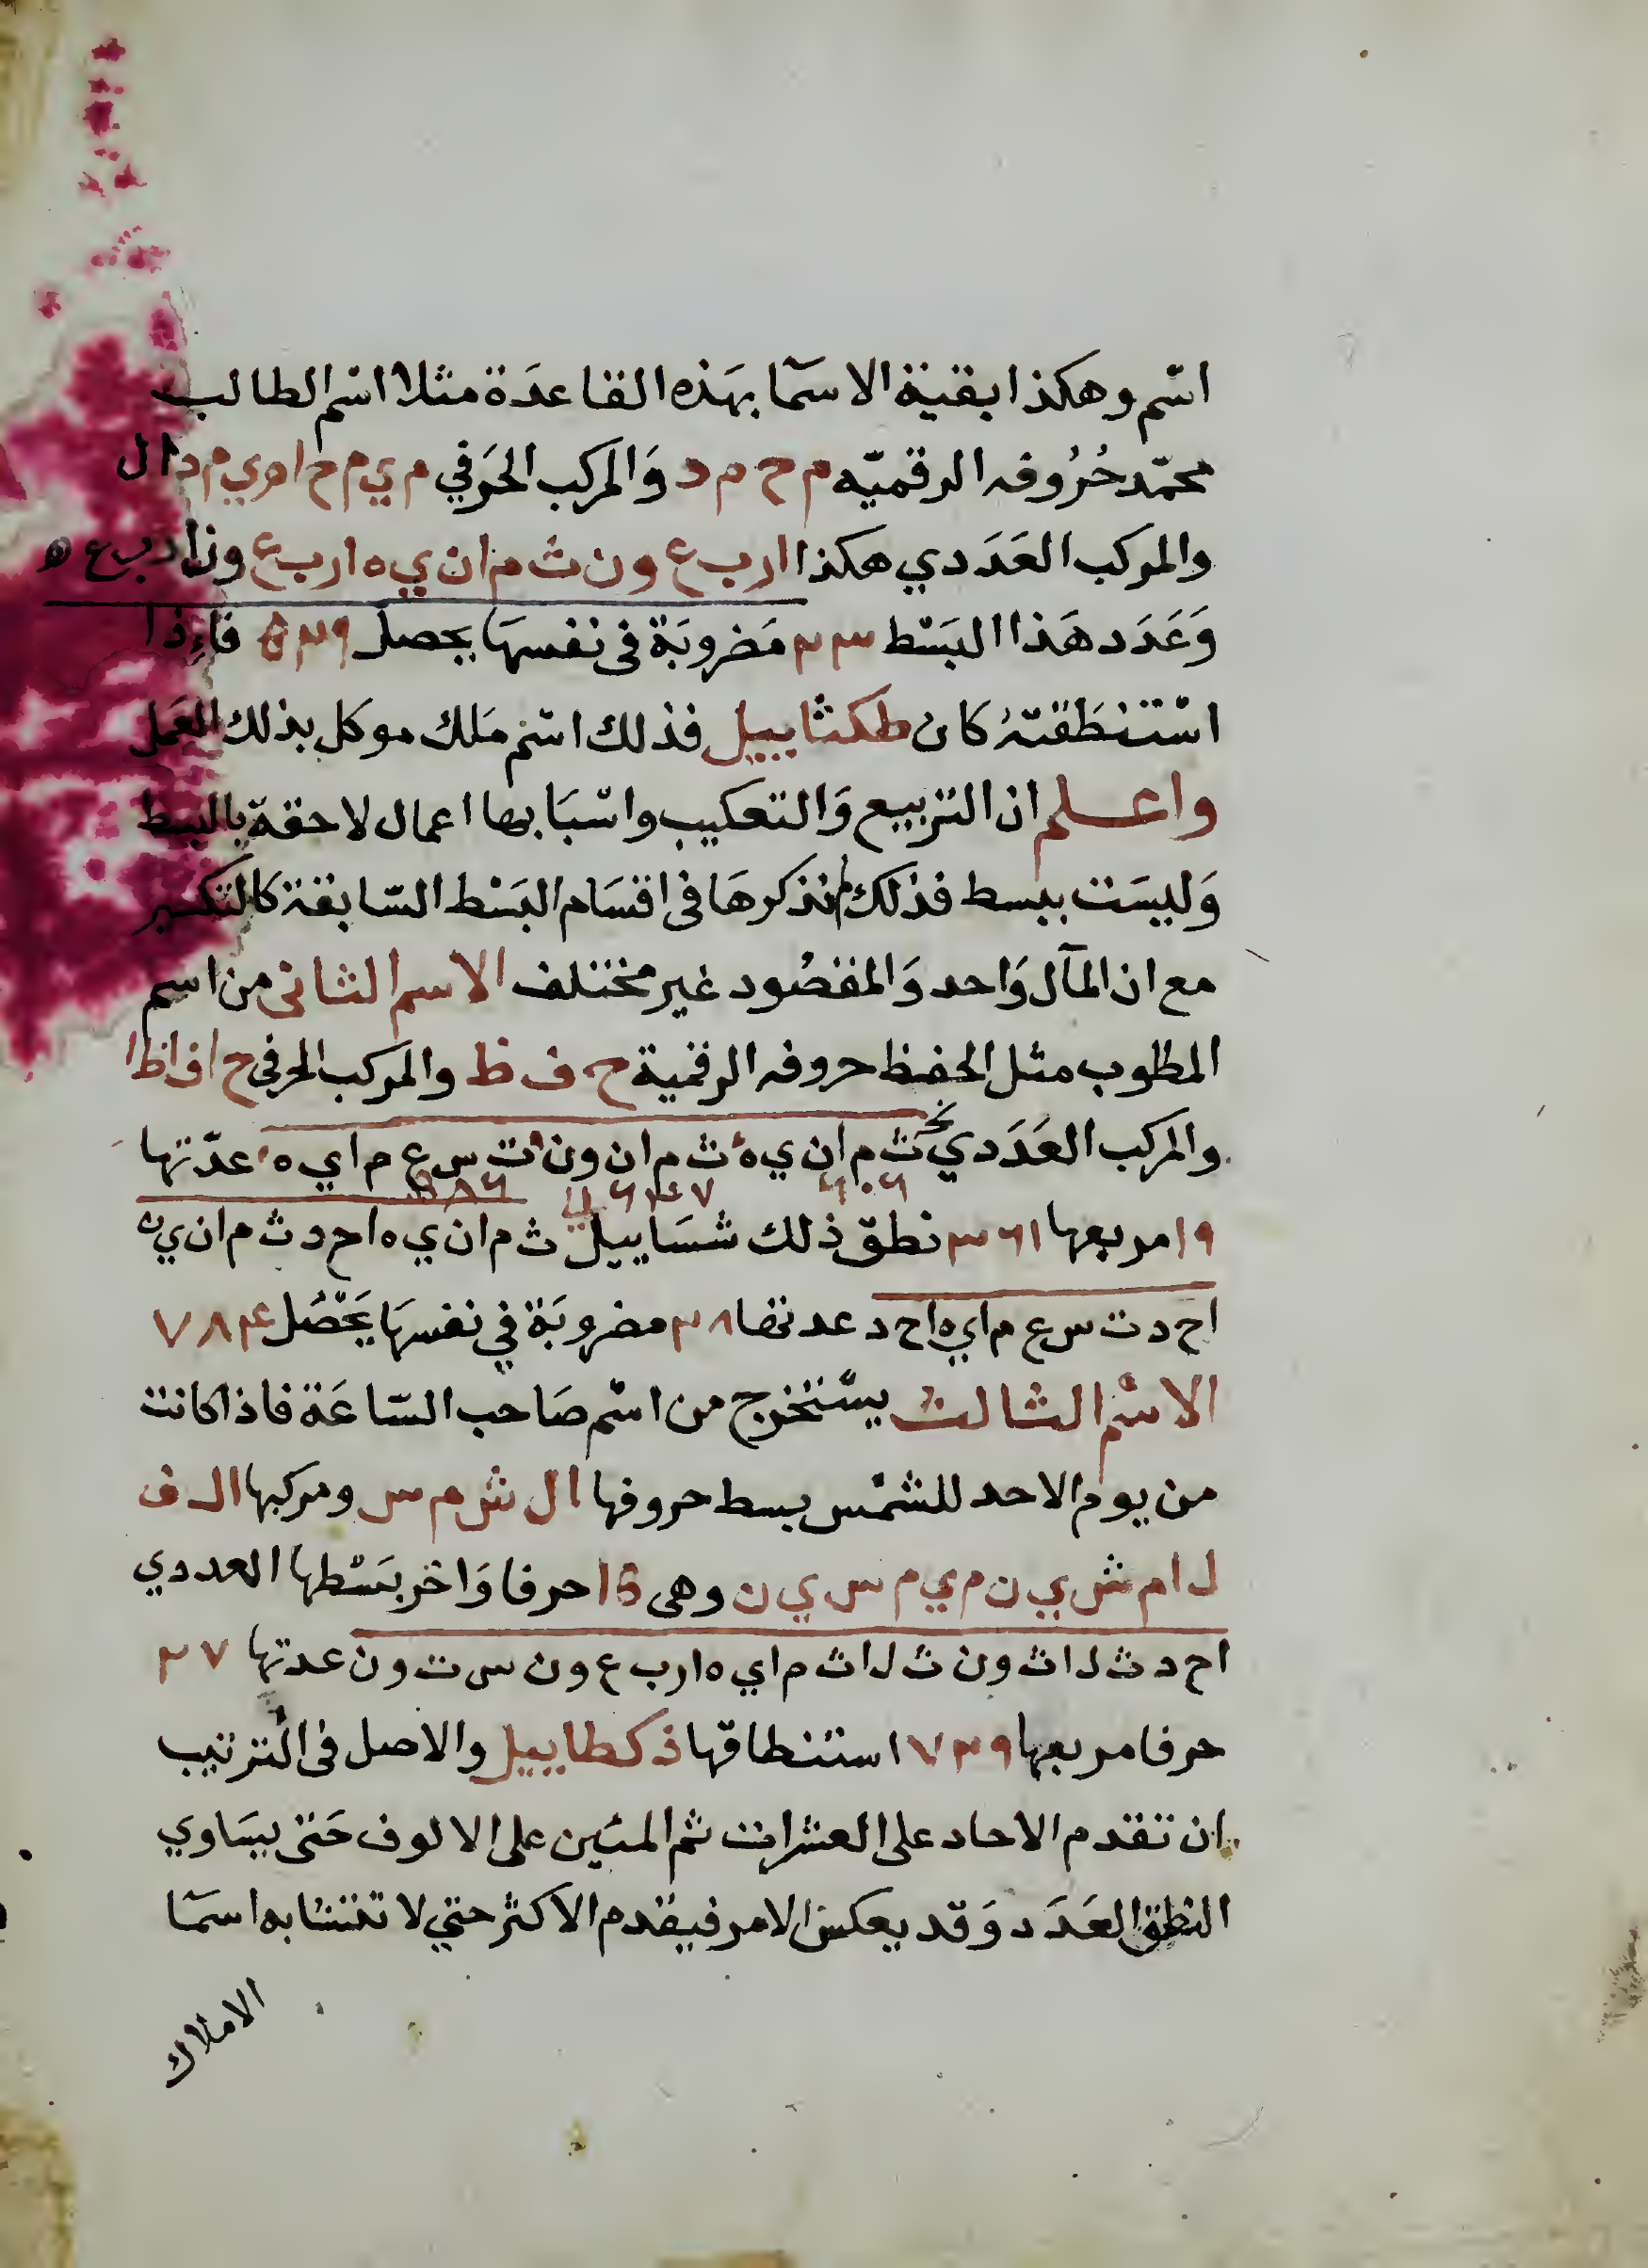 اسم وهكذا بقية الاسمآ بهَذه القاعدَة مثلا اسم الطالب
محمّد حُرُوفه الرقميّه م ح م د وَالمركب الحَرفي م ي م ح ا م ي م د ا ل
والمركب العَدَدي هكذا ا ر ب ع و ن ث م ا ن ي ه ا ر ب ع و ن ا ر ب ع ه
وَعَدَد هَذا البَسْط ٢٣ مَضروبَة فى نفسهَا يحصل ٥٢٩ فاءِذا
اسْتنطَقتهُ كان طكثاييل فذلك اسم مَلك موكل بذلك العَمل
واعلم ان التربيع وَالتعكيب واسْبَابها اعمال لاحقة بالبسط
وَليسَت ببسط فذلك لم نذكرهَا فى اقسَام البَسْط السّابقة كالتكسير
مع ان المآل وَاحد وَالمقصُود غير مختلف الاسم الثانى من اسم
المطلوب مثل الحفيظ حروفه الرقمية ح ف ظ والمركب الحرفى ح ا ف ا ظ ا
والمركب العَدَدي ث م ا ن ي ه ث م ا ن و ن ت س ع م ا ي ه عدّتها
٦٠٦ ٦٤٧ ٨٦
١٩ مربعها ٣٦١ نطق ذلك شسَاييل ث م ا ن ي ه ا ح د ث م ا ن ي ن
ا ح د ت س ع م ا ي ه ا ح د عدتها ٢٨ مضروبَة في نفسهَا يَحْصُل ٧٨٤
الاسْم الثالث يسْتخرج من اسْم صَاحب السّاعَة فاذا كانت
من يوم الاحد للشمْس بسط حروفها ا ل ش م س ومركبها ا ل ف
ل ا م ش ي ن م ي م س ي ن وهى 15 حرفا وَاخر بسْطها العددي
ا ح د ث ل ا ث و ن ث ل ا ث م ا ي ه ا ر ب ع و ن س ت و ن عدتها ٢٧
حرفا مربعها ٧٢٩ استنطاقها ذكطاييل والاصل فى الترتيب
ان تقدم الاحاد على العشرات ثم المئين على الالوف حَتى يسَاوي
النطق العَدَد وَقد يعكس الامر فيقدم الاكثر حتي لا تتشابه اسمآ
الاملاك